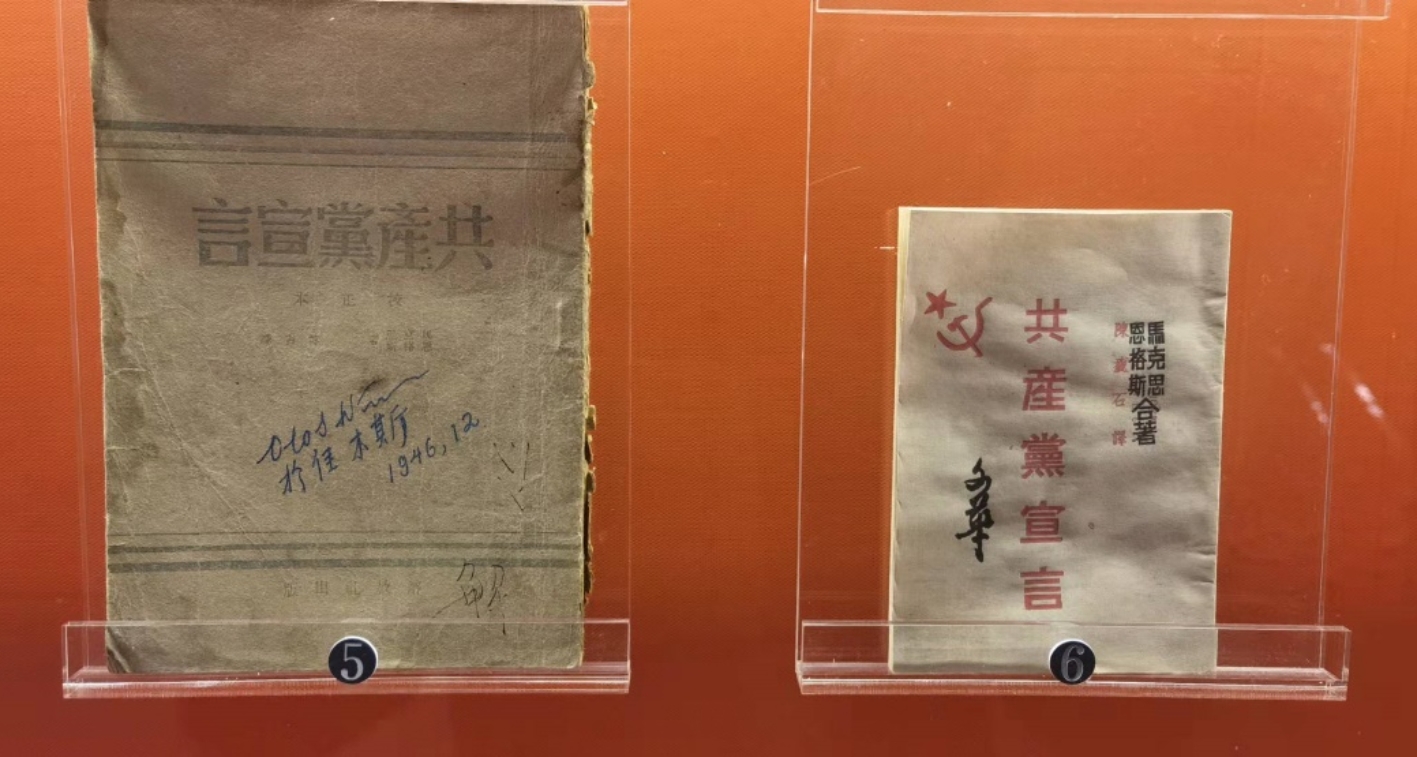 共產黨宣言
校正本
於佳木斯
1946,12
5
馬克思
恩格斯
合著
陳瘦石譯
共產黨宣言
文華
6